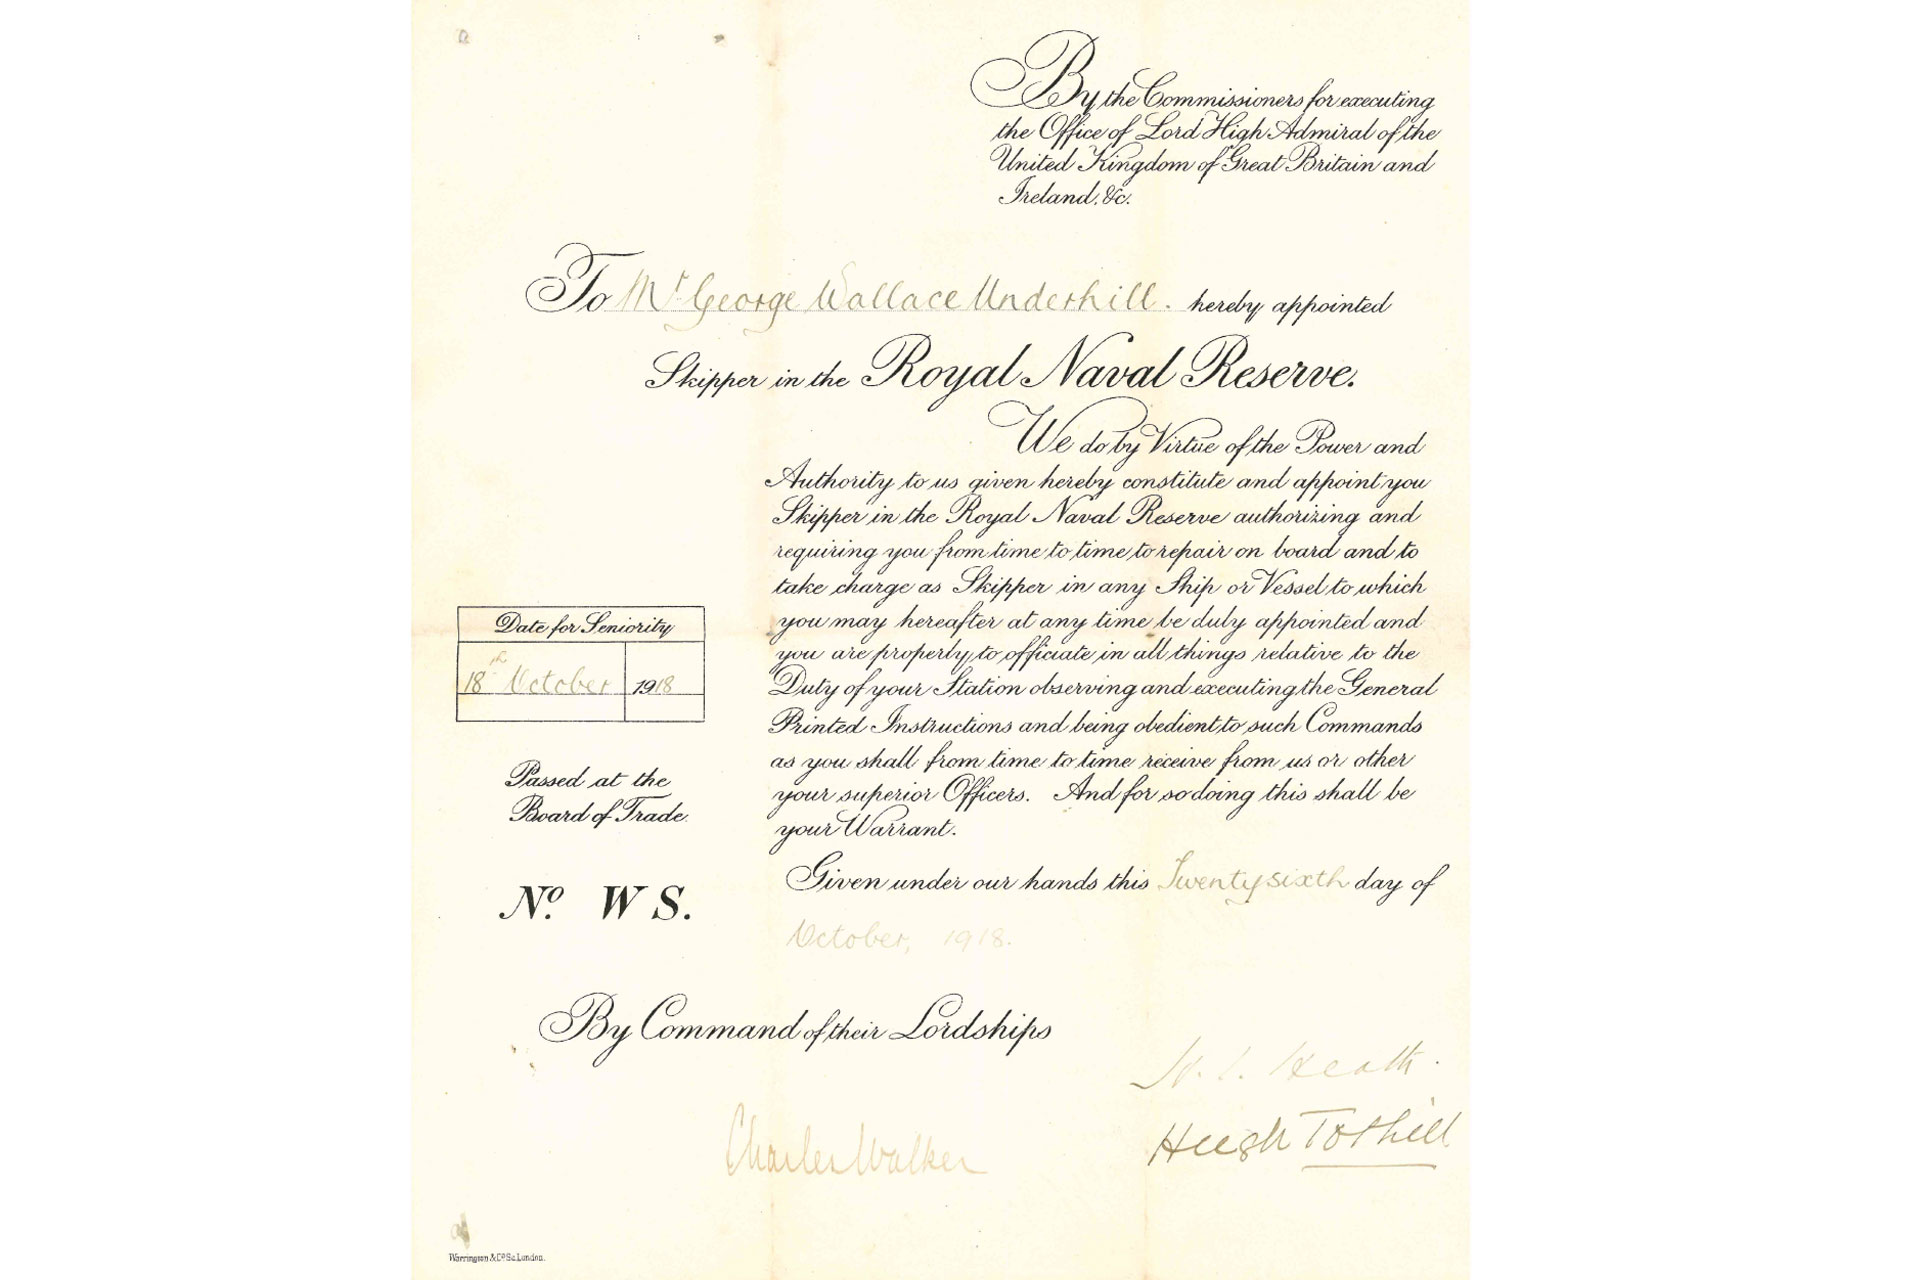 By the Commissioners for executing
the Office of Lord High Admiral of the
United Kingdom of Great Britain and
Ireland, &c.
To Mr George Wallace Underhill. hereby appointed
Skipper in the Royal Naval Reserve.
We do by Virtue of the Power and
Authority to us given hereby constitute and appoint you
Skipper in the Royal Naval Reserve authorizing and
requiring you from time to time to repair on board and to
take charge as Skipper in any Ship or Vessel to which
you may hereafter at any time be duly appointed and
you are properly to officiate in all things relative to the
Duty of your Station observing and executing the General
Printed Instructions and being obedient to such Commands
as you shall from time to time receive from us or other
your superior Officers. And for so doing this shall be
your Warrant.
Date for Seniority
18th October 1918
Passed at the
Board of Trade.
No. W S.
Given under our hands this Twenty sixth day of
October, 1918.
By Command of their Lordships
H. L. Heath.
Hugh Tothill
Charles Walker
Warrington & Co. Sc. London.